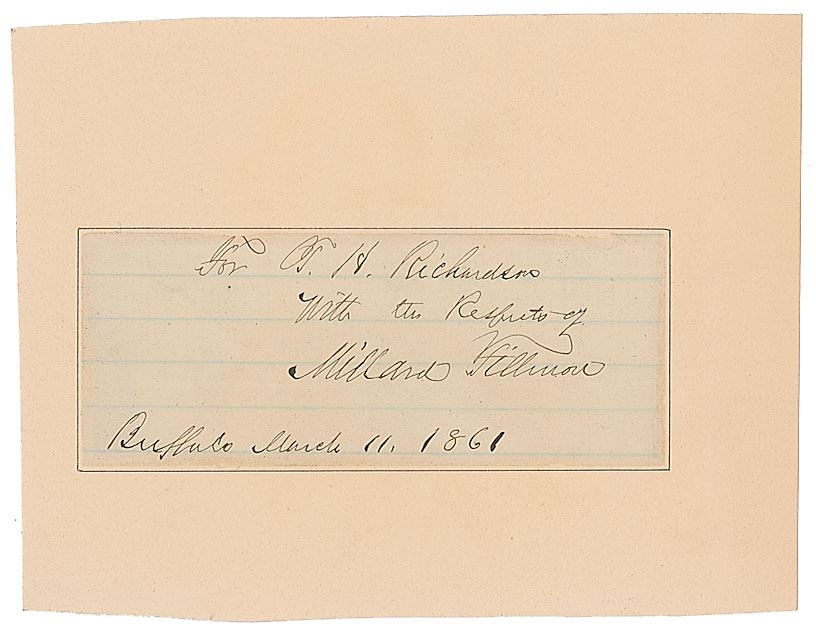 For T. H. Richardson
With the Respects of
Millard Fillmore
Buffalo March 11. 1861